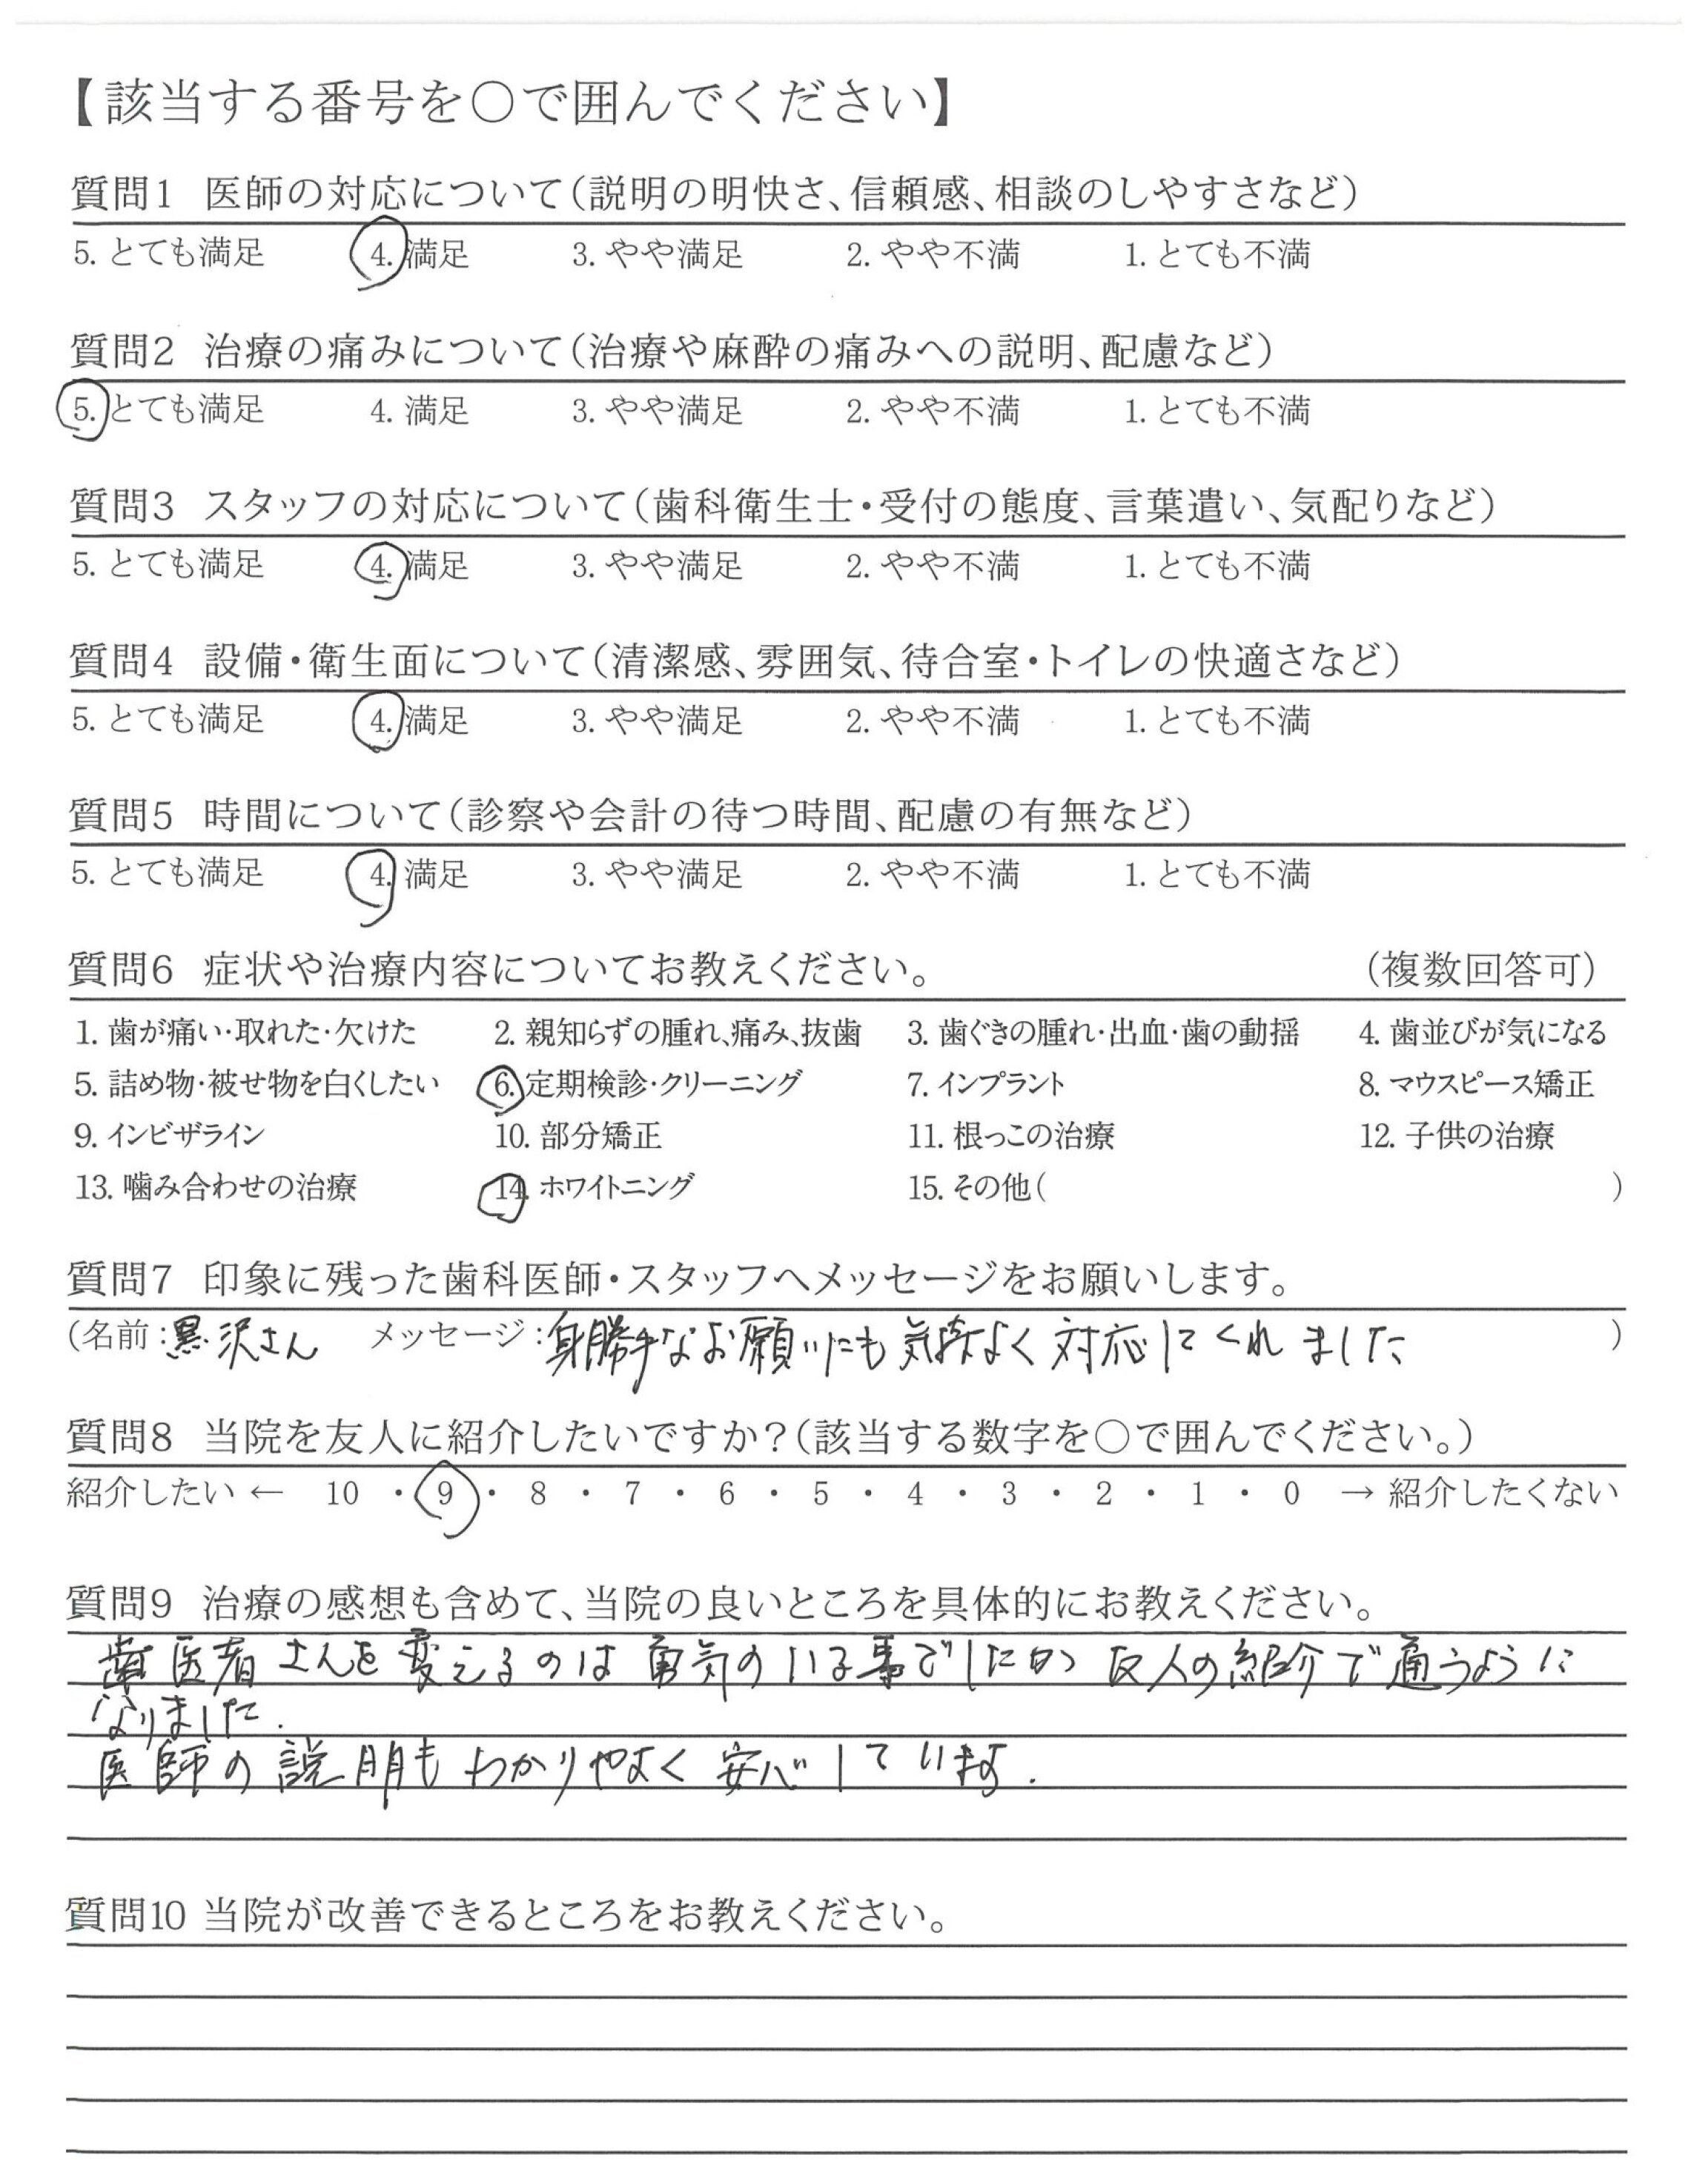 【該当する番号を○で囲んでください】
質問1 医師の対応について（説明の明快さ、信頼感、相談のしやすさなど）
5. とても満足 4. 満足 3. やや満足 2. やや不満 1. とても不満
質問2 治療の痛みについて（治療や麻酔の痛みへの説明、配慮など）
5. とても満足 4. 満足 3. やや満足 2. やや不満 1. とても不満
質問3 スタッフの対応について（歯科衛生士・受付の態度、言葉遣い、気配りなど）
5. とても満足 4. 満足 3. やや満足 2. やや不満 1. とても不満
質問4 設備・衛生面について（清潔感、雰囲気、待合室・トイレの快適さなど）
5. とても満足 4. 満足 3. やや満足 2. やや不満 1. とても不満
質問5 時間について（診察や会計の待つ時間、配慮の有無など）
5. とても満足 4. 満足 3. やや満足 2. やや不満 1. とても不満
質問6 症状や治療内容についてお教えください。 （複数回答可）
1. 歯が痛い・取れた・欠けた 2. 親知らずの腫れ、痛み、抜歯 3. 歯ぐきの腫れ・出血・歯の動揺 4. 歯並びが気になる
5. 詰め物・被せ物を白くしたい 6. 定期検診・クリーニング 7. インプラント 8. マウスピース矯正
9. インビザライン 10. 部分矯正 11. 根っこの治療 12. 子供の治療
13. 噛み合わせの治療 14. ホワイトニング 15. その他（ ）
質問7 印象に残った歯科医師・スタッフへメッセージをお願いします。
（名前：黒沢さん メッセージ：身勝手なお願いにも気持よく対応してくれました ）
質問8 当院を友人に紹介したいですか？（該当する数字を○で囲んでください。）
紹介したい ← 10 ・ 9 ・ 8 ・ 7 ・ 6 ・ 5 ・ 4 ・ 3 ・ 2 ・ 1 ・ 0 → 紹介したくない
質問9 治療の感想も含めて、当院の良いところを具体的にお教えください。
歯医者さんを変えるのは勇気のいる事でしたが 友人の紹介で通うように
なりました.
医師の説明もわかりやすく安心しています.
質問10 当院が改善できるところをお教えください。